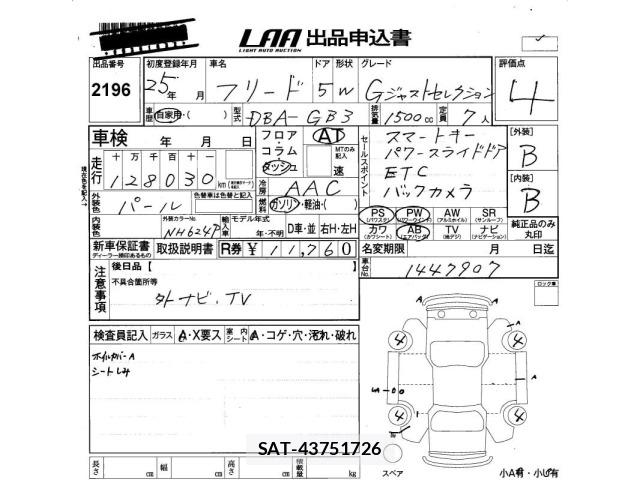 LAA 出品申込書
LIGHT AUTO AUCTION
出品番号 初度登録年月 車名 ドア 形状 グレード 評価点
2196 25年 月 フリード 5 W Gジャストセレクション 4
車歴 自家用・( ) 型式 DBA-GB3 排気量 1500cc 定員 7人
車検 年 月 日
フロア・コラム・ダッシュ AT
MTのみ記入
速
セールスポイント
スマートキー
パワースライドドア
ETC
バックカメラ
[外装] B
[内装] B
走行 十万千百十
128030 km
冷房 AAC
燃料 ガソリン・軽油・( )
外装色 パール
色替車は色替と記入
内装色
外装カラーNo. NH624P
輸入車 モデル年式
年・不明
D車・並 右H・左H
PS PW AW SR
(パワステ) (パワーウインド) (アルミホイル) (サンルーフ)
カワ AB TV ナビ
(カワシート) (エアバック) (地デジ) (ナビゲーション)
純正品のみ丸印
新車保証書 取扱説明書 R券 ¥11,760
ディーラー捺印あるもの
名変期限 月 日迄
車台No. 1447907
注意事項
後日品【 】
不具合箇所等
外ナビ、TV
ロック車
検査員記入 ガラス A・X要ス 室内シート A・コゲ・穴・汚れ・破れ
ホイルカバーA
シートしみ
4 4 4 4
A
A
SAT-43751726
長さ cm 幅 cm 高さ cm 積載量 kg
スペア
小A有・小U有